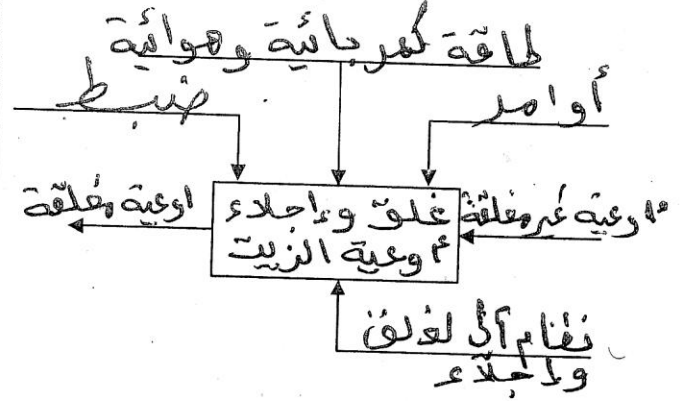 طاقة كهربائية وهوائية
ضبط
أوامر
أوعية غير مغلقة
غلق وإجلاء
أوعية الزيت
اوعية مغلقة
نظام آلي لغلق
وإجلاء